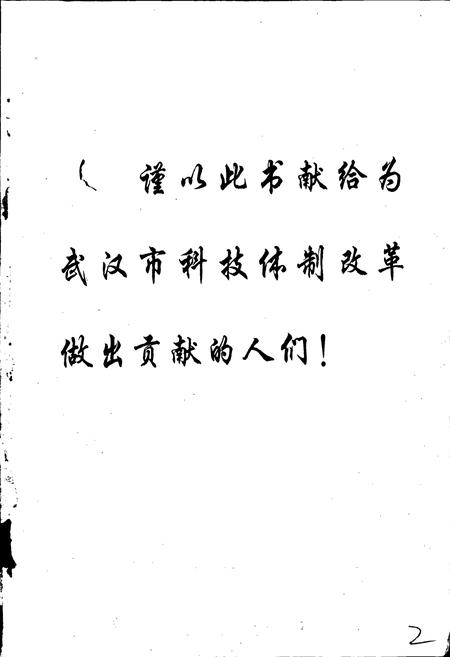 谨以此书献给为
武汉市科技体制改革
做出贡献的人们！
2